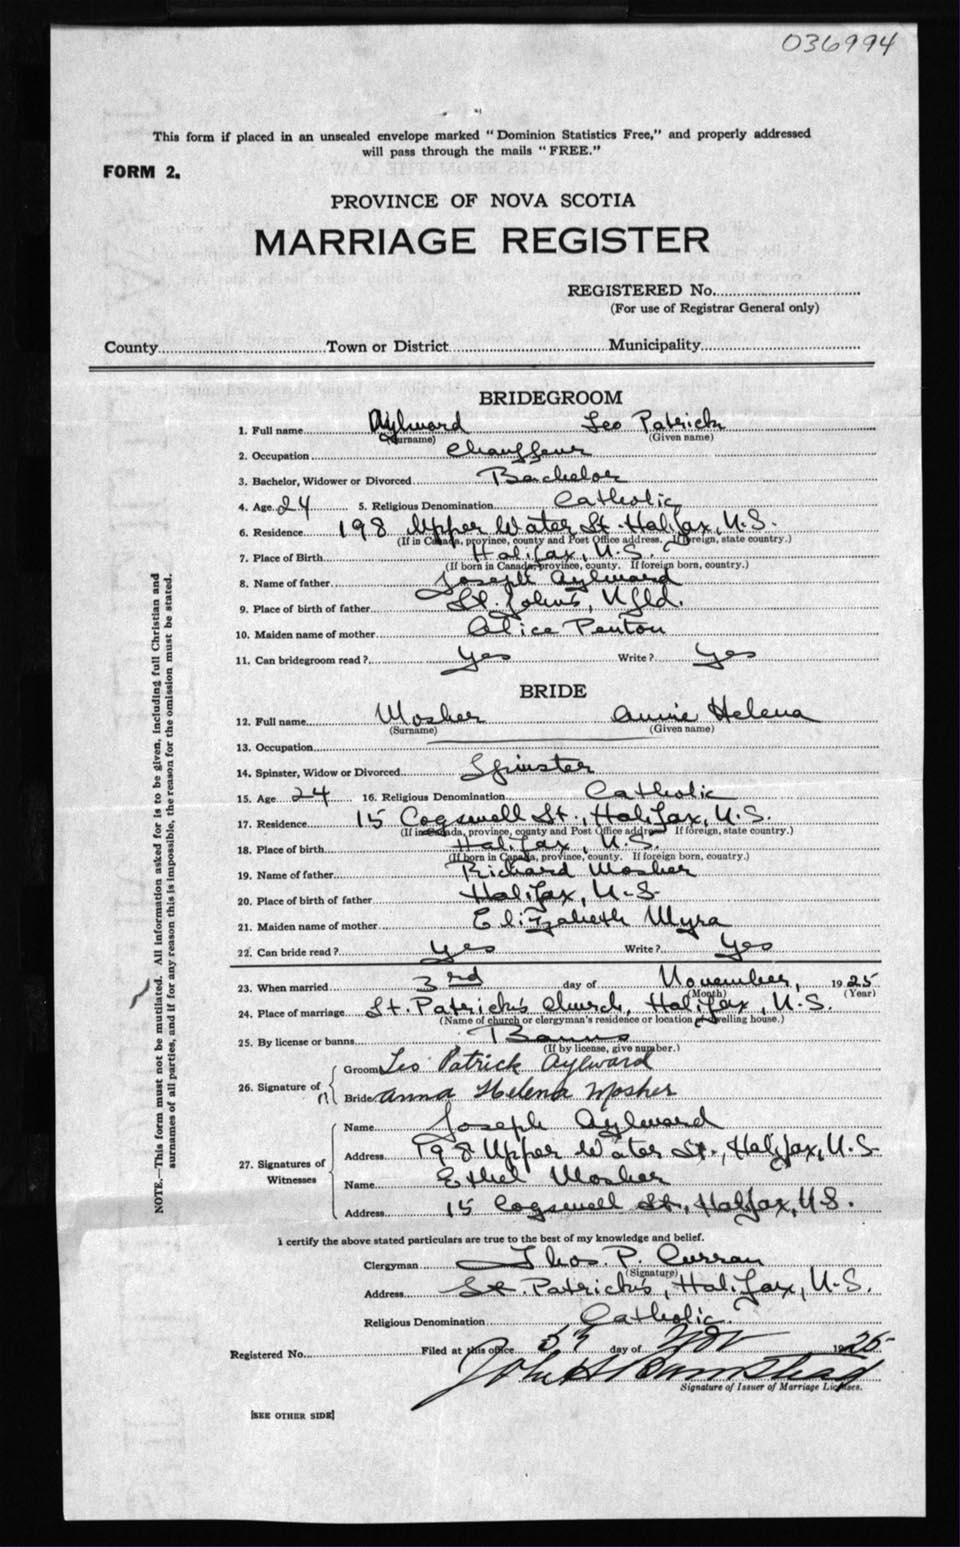 036994
This form if placed in an unsealed envelope marked "Dominion Statistics Free," and properly addressed
will pass through the mails "FREE."
FORM 2.
PROVINCE OF NOVA SCOTIA
MARRIAGE REGISTER
REGISTERED No.
(For use of Registrar General only)
County Town or District Municipality
BRIDEGROOM
1. Full name Aylward Leo Patrick
(Surname) (Given name)
2. Occupation Chauffeur
3. Bachelor, Widower or Divorced Bachelor
4. Age 24 5. Religious Denomination Catholic
6. Residence 198 Upper Water St. Halifax, N.S.
(If in Canada, province, county and Post Office address. If foreign, state country.)
7. Place of Birth Halifax, N.S.
(If born in Canada, province, county. If foreign born, country.)
8. Name of father Joseph Aylward
9. Place of birth of father St. John's, Nfld.
10. Maiden name of mother Alice Penton
11. Can bridegroom read? Yes Write? Yes
BRIDE
12. Full name Mosher Annie Helena
(Surname) (Given name)
13. Occupation
14. Spinster, Widow or Divorced Spinster
15. Age 24 16. Religious Denomination Catholic
17. Residence 15 Cogswell St., Halifax, N.S.
(If in Canada, province, county and Post Office address If foreign, state country.)
18. Place of birth Halifax, N.S.
(If born in Canada, province, county. If foreign born, country.)
19. Name of father Richard Mosher
20. Place of birth of father Halifax, N.S.
21. Maiden name of mother Elizabeth Myra
22. Can bride read? Yes Write? Yes
23. When married 3rd day of November, 1925
(Month) (Year)
24. Place of marriage St. Patrick's Church, Halifax, N.S.
(Name of church or clergyman's residence or location of dwelling house.)
25. By license or banns Banns
(If by license, give number.)
26. Signature of Groom Leo Patrick Aylward
Bride Anna Helena Mosher
27. Signatures of Witnesses
Name Joseph Aylward
Address 198 Upper Water St., Halifax, N.S.
Name Ethel Mosher
Address 15 Cogswell St., Halifax, N.S.
I certify the above stated particulars are true to the best of my knowledge and belief.
Clergyman Thos. P. Curran
(Signature)
Address St. Patrick's, Halifax, N.S.
Religious Denomination Catholic.
Registered No. Filed at this office day of Nov 1925
John
Signature of Issuer of Marriage Licenses.
[SEE OTHER SIDE]
NOTE.—This form must not be mutilated. All information asked for is to be given, including full Christian and
surnames of all parties, and if for any reason this is impossible, the reason for the omission must be stated.